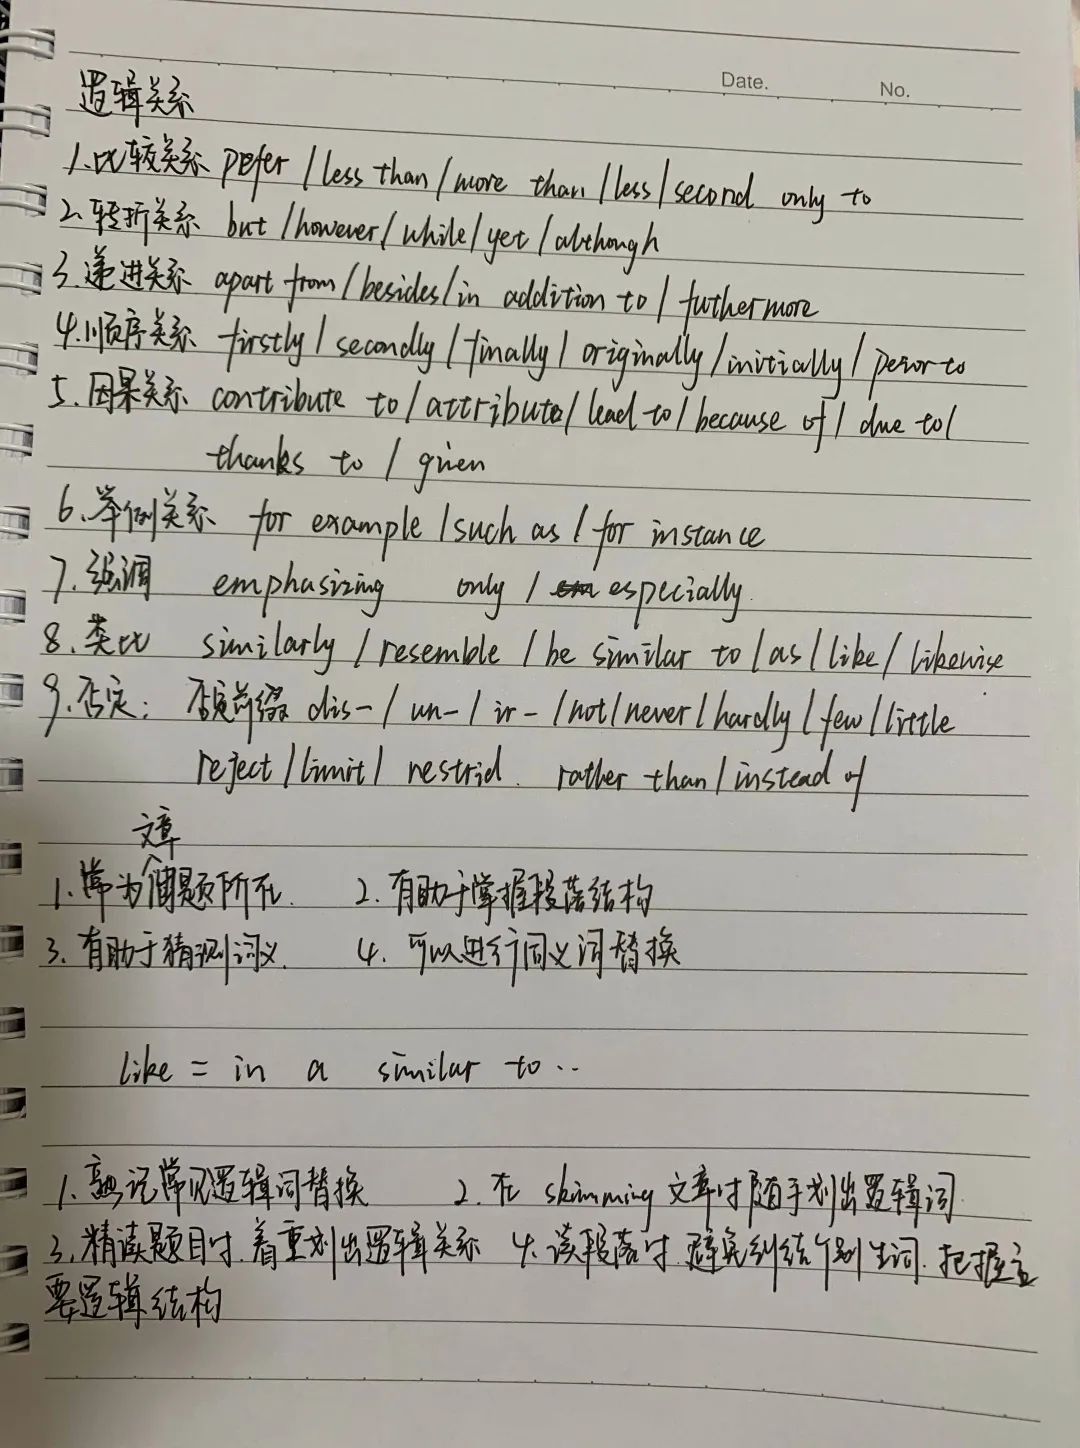 Date. No.
逻辑关系
1.比较关系 pefer / less than / more than / less / second only to
2.转折关系 but / however / while / yet / although
3.递进关系 apart from / besides / in addition to / futhermore
4.顺序关系 firstly / secondly / finally / originally / initially / perior to
5.因果关系 contribute to / attribute / lead to / because of / due to /
thanks to / given
6.举例关系 for example / such as / for instance
7.强调 emphasizing only / especially.
8.类比 similarly / resemble / be similar to / as / like / likewise
9.否定: 否定前缀 dis- / un- / ir- / not / never / hardly / few / little
reject / limit / restrid. rather than / instead of
文章
1.常为出题所在. 2.有助于掌握段落结构
3.有助于猜测词义. 4.可以进行同义词替换
like = in a similar to..
1.熟记常见逻辑词替换 2.在 skimming 文章时随手划出逻辑词.
3.精读题目时.着重划出逻辑关系 4.读段落时.避免纠结个别生词.把握主
要逻辑结构